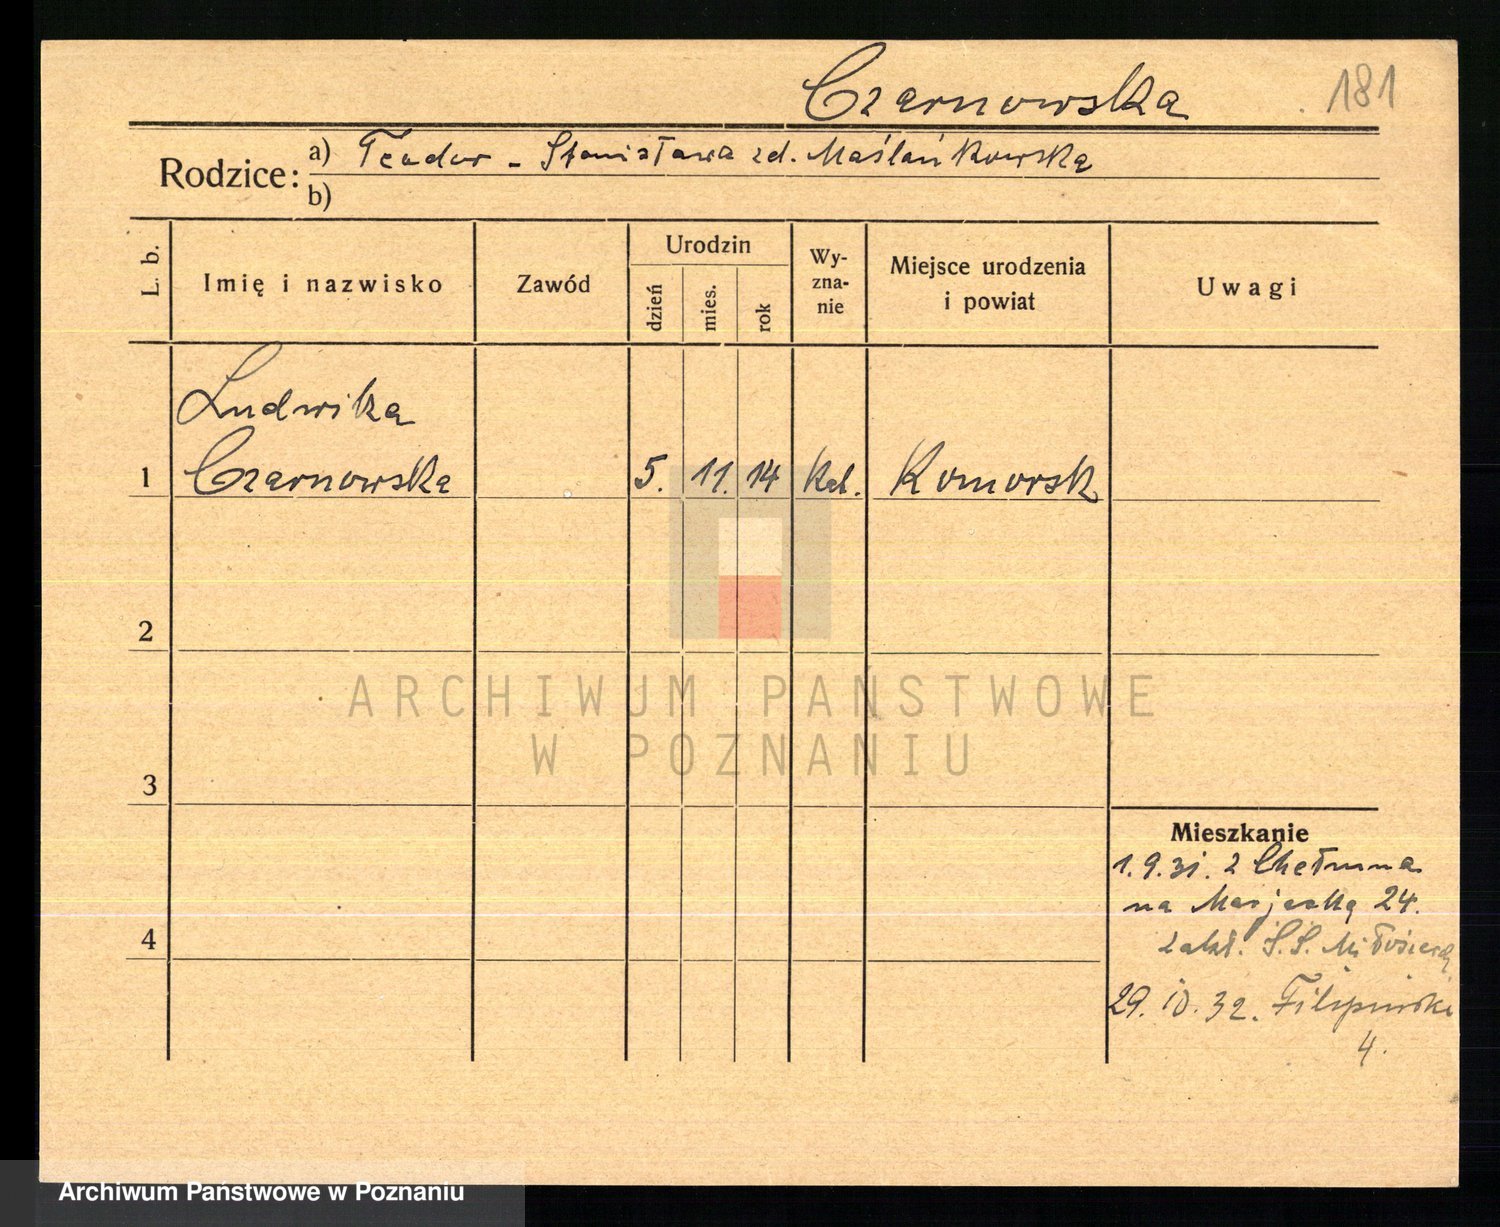 Czarnowska
181
Rodzice: a) Teodor - Stanisława zd. Maślankowska
b)
L. b.
Imię i nazwisko
Zawód
Urodzin
dzień
mies.
rok
Wy-
zna-
nie
Miejsce urodzenia
i powiat
Uwagi
Ludwika
1 Czarnowska 5. 11. 14 Kat. Komorsk
2
ARCHIWUM PAŃSTWOWE
W POZNANIU
3
Mieszkanie
1.9.31. z Chełmna
na 24.
4
zakł. S.S. Miłosierdz
29.10.32. Filipińska
4.
Archiwum Państwowe w Poznaniu